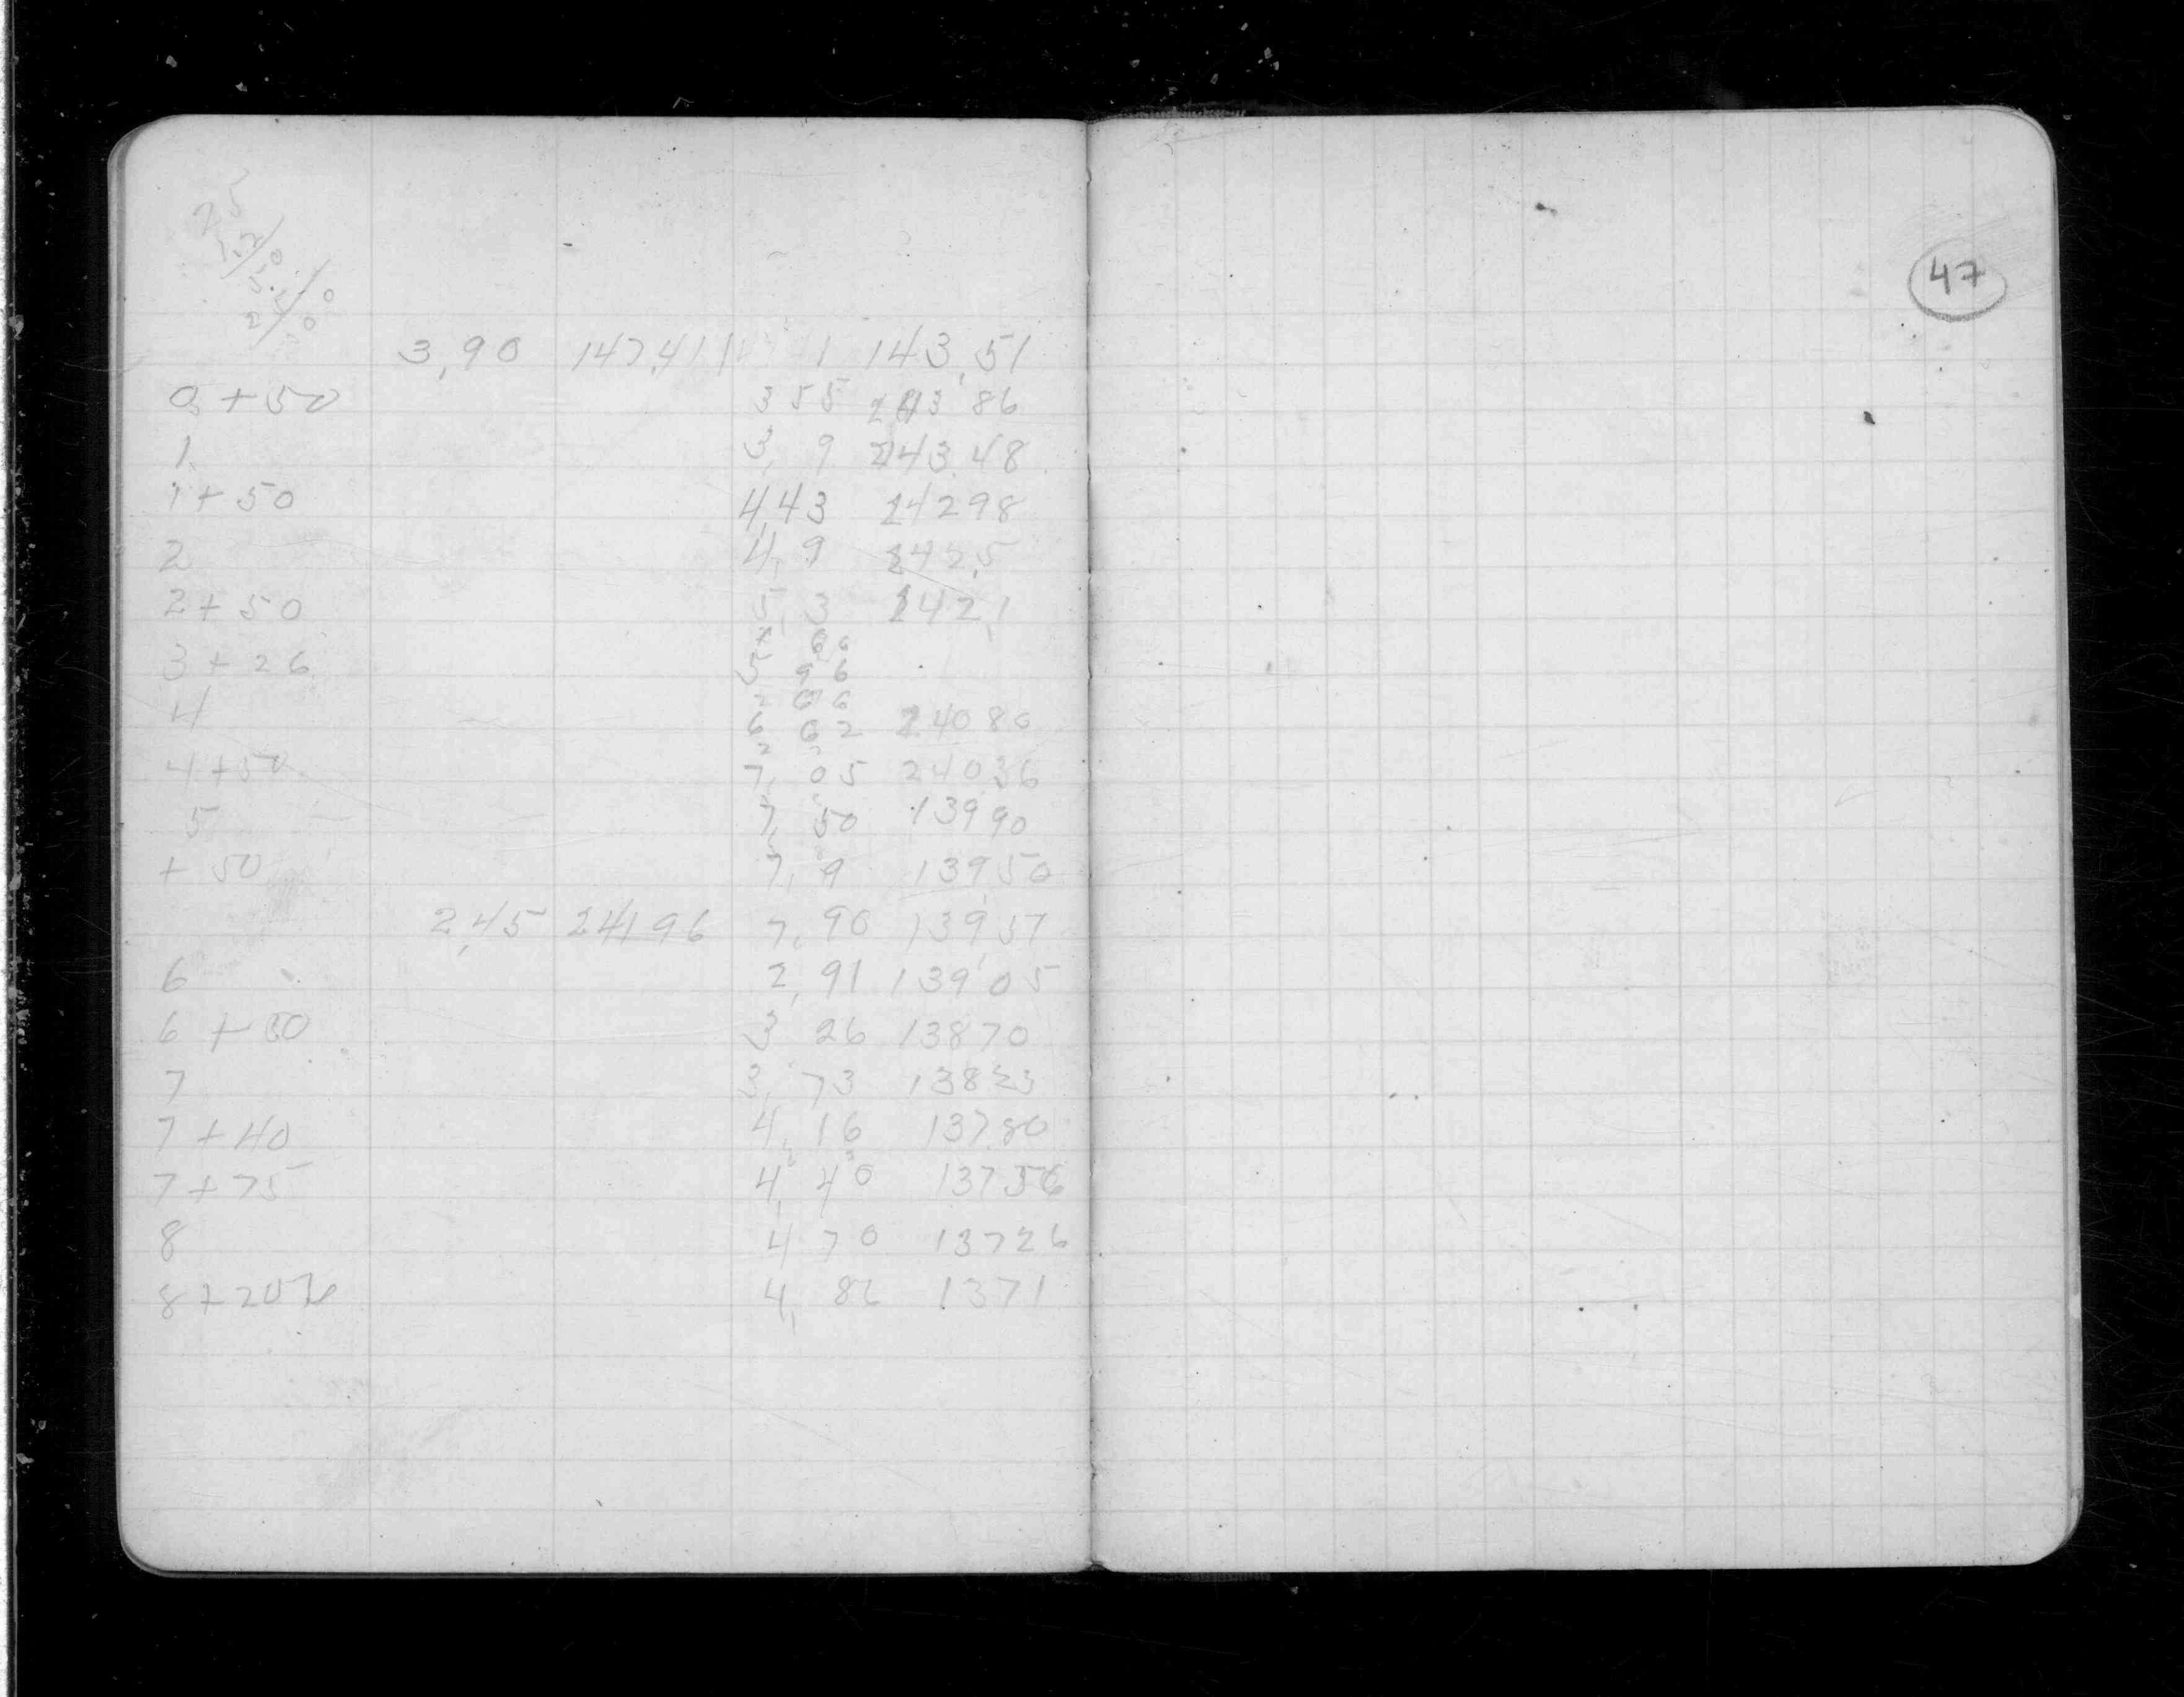 47
3,90 147,41 1 143,51
0 + 50 3 55 243 86
1 3, 9 243 48
1 + 50 4,43 24298
2 4, 9 242,5
2 + 50 5, 3 242,1
3 + 26 5 96
4 6 62 24080
4 + 50 7, 05 24036
5 7, 50 13990
+ 50 7, 9 13950
2,45 24196 7, 90 139,51
6 2, 91 139 05
6 + 50 3 26 13870
7 3, 73 13823
7 + 40 4, 16 13780
7 + 75 4, 40 13756
8 4 70 13726
4, 86 1371